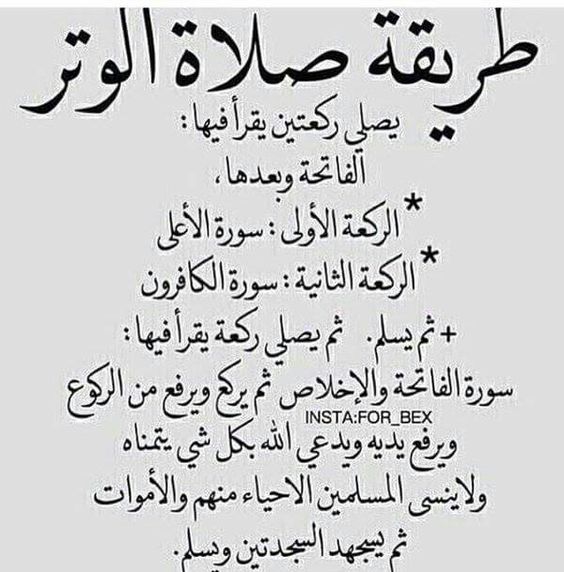 طريقة صلاة الوتر
يصلي ركعتين يقرأ فيها:
الفاتحة وبعدها،
* الركعة الأولى: سورة الأعلى
* الركعة الثانية: سورة الكافرون
+ ثم يسلم. ثم يصلي ركعة يقرأ فيها:
سورة الفاتحة والإخلاص ثم يركع ويرفع من الركوع
INSTA:FOR_BEX
ويرفع يديه ويدعي الله بكل شي يتمناه
ولاينسى المسلمين الاحياء منهم والأموات
ثم يسجهد السجدتين ويسلم.